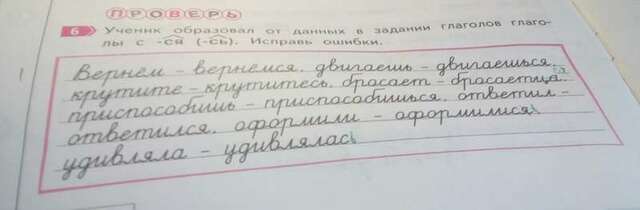 ПРОВЕРЬ
6 Ученик образовал от данных в задании глаголов глаго-
лы с -ся (-сь). Исправь ошибки.
Вернём - вернёмся, двигаешь - двигаешься,
крутите - крутитесь, бросает - бросаетца,
приспособишь - приспособишься, ответил -
ответился, оформили - оформилися,
удивляла - удивлялас